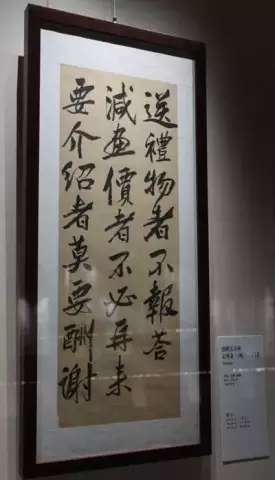 送禮物者不報答
減畫價者不必再來
要介紹者莫要酬謝